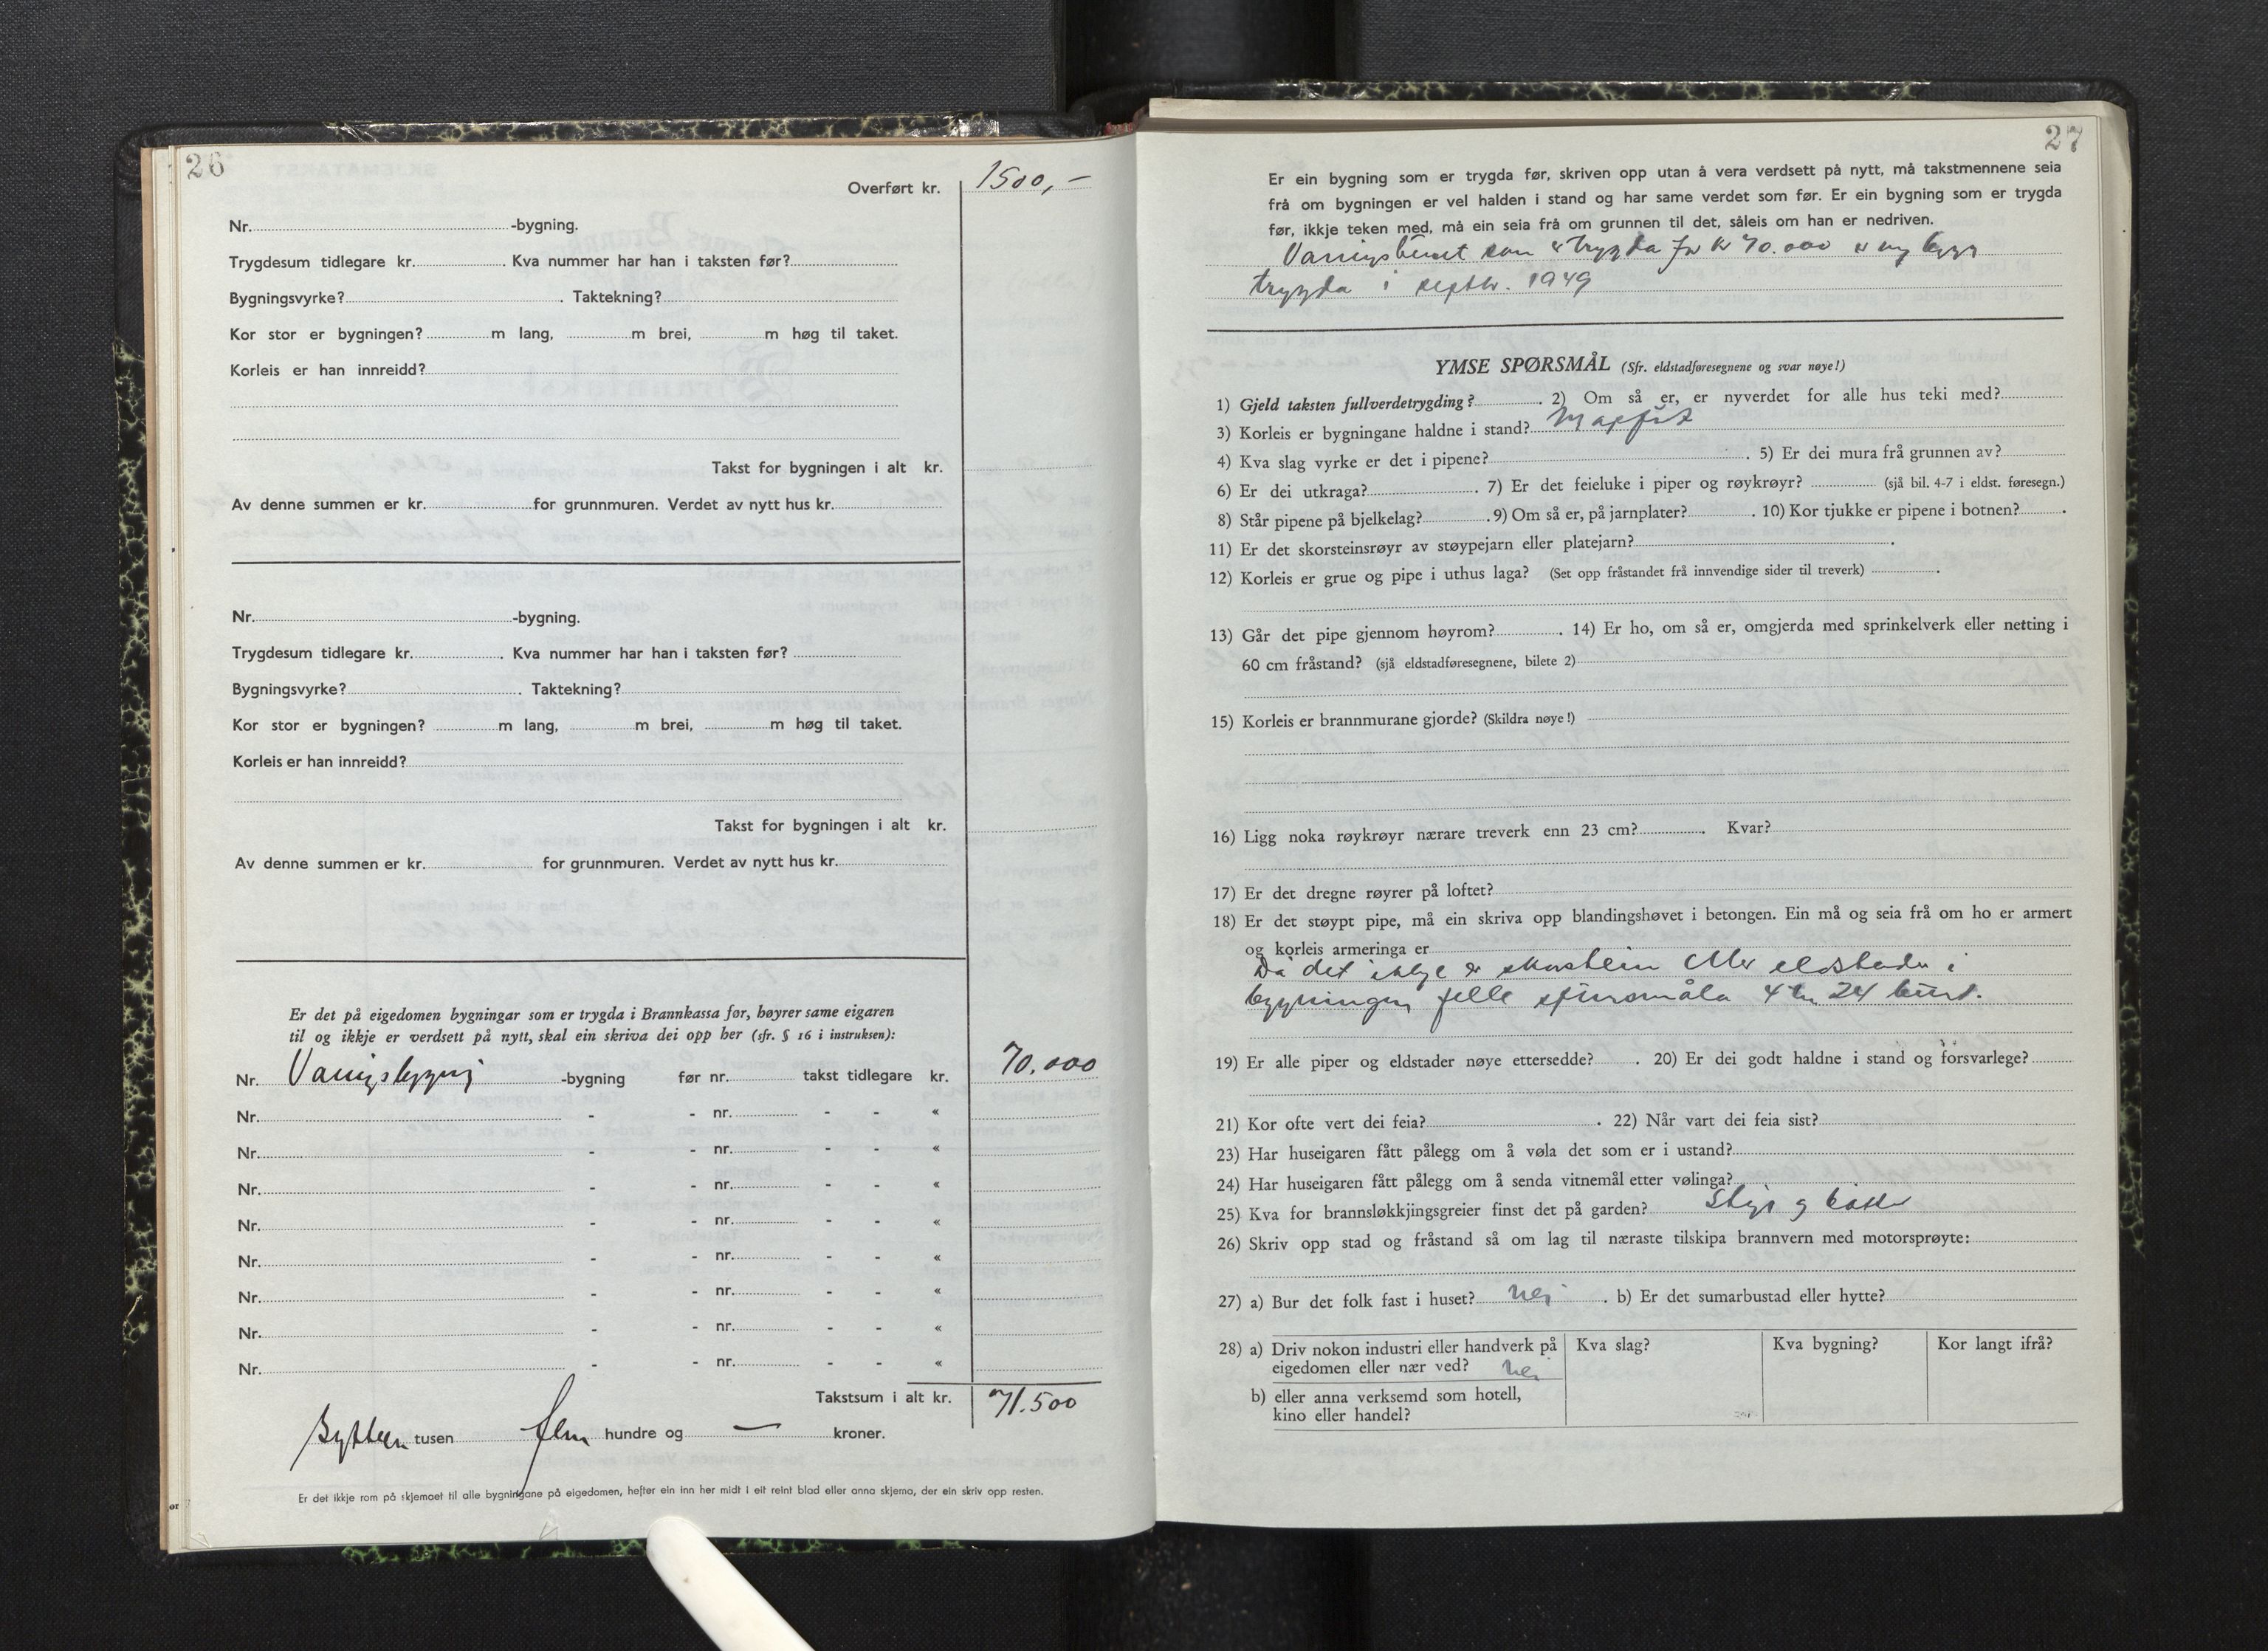 26
Overført kr. 1500,-
Nr. -bygning.
Trygdesum tidlegare kr. . Kva nummer har han i taksten før?
Bygningsvyrke? . Taktekning?
Kor stor er bygningen? m lang, m brei, m høg til taket.
Korleis er han innreidd?
Takst for bygningen i alt kr.
Av denne summen er kr. for grunnmuren. Verdet av nytt hus kr.
Nr. -bygning.
Trygdesum tidlegare kr. . Kva nummer har han i taksten før?
Bygningsvyrke? . Taktekning?
Kor stor er bygningen? m lang, m brei, m høg til taket.
Korleis er han innreidd?
Takst for bygningen i alt kr.
Av denne summen er kr. for grunnmuren. Verdet av nytt hus kr.
Er det på eigedomen bygningar som er trygda i Brannkassa før, høyrer same eigaren
til og ikkje er verdsett på nytt, skal ein skriva dei opp her (sfr. § 16 i instruksen):
Nr. Vaningsbygning -bygning før nr. takst tidlegare kr. 70.000
Nr. - - nr. - - «
Nr. - - nr. - - «
Nr. - - nr. - - «
Nr. - - nr. - - «
Nr. - - nr. - - «
Nr. - - nr. - - «
Nr. - - nr. - - «
Nr. - - nr. - - «
Takstsum i alt kr. 71.500
tusen fem hundre og — kroner.
Er det ikkje rom på skjemaet til alle bygningane på eigedomen, hefter ein inn her midt i eit reint blad eller anna skjema, der ein skriv opp resten.
27
Er ein bygning som er trygda før, skriven opp utan å vera verdsett på nytt, må takstmennene seia
frå om bygningen er vel halden i stand og har same verdet som før. Er ein bygning som er trygda
før, ikkje teken med, må ein seia frå om grunnen til det, såleis om han er nedriven.
Vaningshuset som er trygda for kr 70.000 er ny bygt
trygda i septbr. 1949
YMSE SPØRSMÅL (Sfr. eldstadføresegnene og svar nøye!)
1) Gjeld taksten fullverdetrygding? . 2) Om så er, er nyverdet for alle hus teki med?
3) Korleis er bygningane haldne i stand?
4) Kva slag vyrke er det i pipene? . 5) Er dei mura frå grunnen av?
6) Er dei utkraga? . 7) Er det feieluke i piper og røykrøyr? (sjå bil. 4-7 i eldst. føresegn.)
8) Står pipene på bjelkelag? . 9) Om så er, på jarnplater? . 10) Kor tjukke er pipene i botnen? .
11) Er det skorsteinsrøyr av støypejarn eller platejarn? .
12) Korleis er grue og pipe i uthus laga? (Set opp fråstandet frå innvendige sider til treverk) .
13) Går det pipe gjennom høyrom? . 14) Er ho, om så er, omgjerda med sprinkelverk eller netting i
60 cm fråstand? (sjå eldstadføresegnene, bilete 2)
15) Korleis er brannmurane gjorde? (Skildra nøye!)
16) Ligg noka røykrøyr nærare treverk enn 23 cm? . Kvar?
17) Er det dregne røyrer på loftet?
18) Er det støypt pipe, må ein skriva opp blandingshøvet i betongen. Ein må og seia frå om ho er armert
og korleis armeringa er
Då det ikkje er skorstein eller eldstader i
bygningen felle spursmåla 4 til 24 burt.
19) Er alle piper og eldstader nøye ettersedde? . 20) Er dei godt haldne i stand og forsvarlege?
21) Kor ofte vert dei feia? . 22) Når vart dei feia sist?
23) Har huseigaren fått pålegg om å vøla det som er i ustand?
24) Har huseigaren fått pålegg om å senda vitnemål etter vølinga?
25) Kva for brannsløkkjingsgreier finst det på garden? Stige og bøtter
26) Skriv opp stad og fråstand så om lag til næraste tilskipa brannvern med motorsprøyte:
27) a) Bur det folk fast i huset? nei . b) Er det sumarbustad eller hytte?
28) a) Driv nokon industri eller handverk på Kva slag? Kva bygning? Kor langt ifrå?
eigedomen eller nær ved? nei
b) eller anna verksemd som hotell,
kino eller handel?